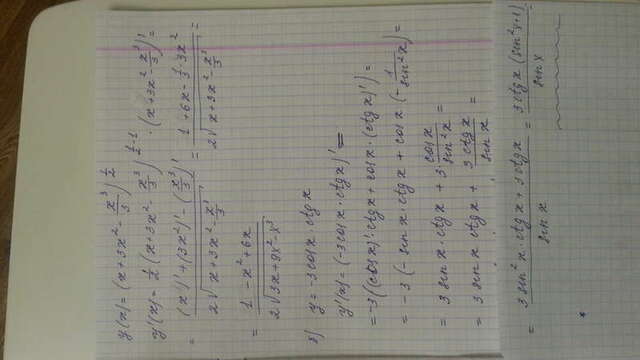 y(x) = (x + 3x² - x³/3)^(1/2)
y'(x) = 1/2 (x + 3x² - x³/3)^(1/2 - 1) · (x + 3x² - x³/3)' =
= ((x)' + (3x²)' - (x³/3)') / (2√(x + 3x² - x³/3)) = (1 + 6x - 1/3 · 3x²) / (2√(x + 3x² - x³/3)) =
= (1 - x² + 6x) / (2√(3x + 9x² - x³))
б) y = -3cosx · ctgx
y'(x) = (-3cosx · ctgx)' =
= -3((cosx)' · ctgx + cosx · (ctgx)') =
= -3(-sinx · ctgx + cosx (-1/sin²x) =
= 3sinx · ctgx + 3 · cosx/sin²x =
= 3sinx ctgx + 3ctgx/sinx =
= (3sin²x · ctgx + 3ctgx)/sinx = 3ctgx (sin²x+1)/sinx =